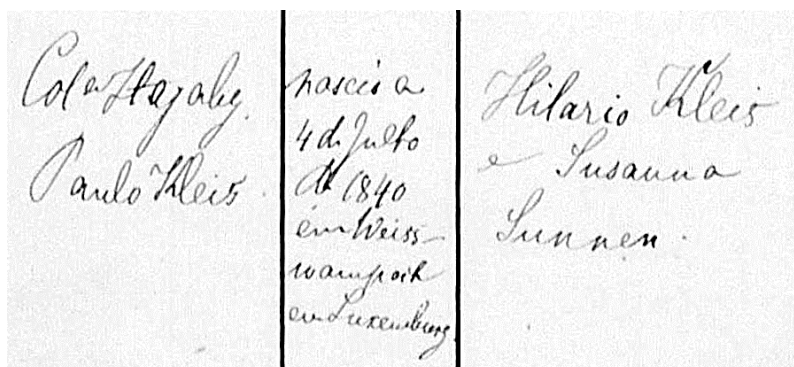 Col em Itajahy.
Paulo Kleis
nascis a
4 de Julho
de 1840
em Weiss-
wampach
em Luxemburg.
Hilario Kleis
e Susanna
Sunnen.